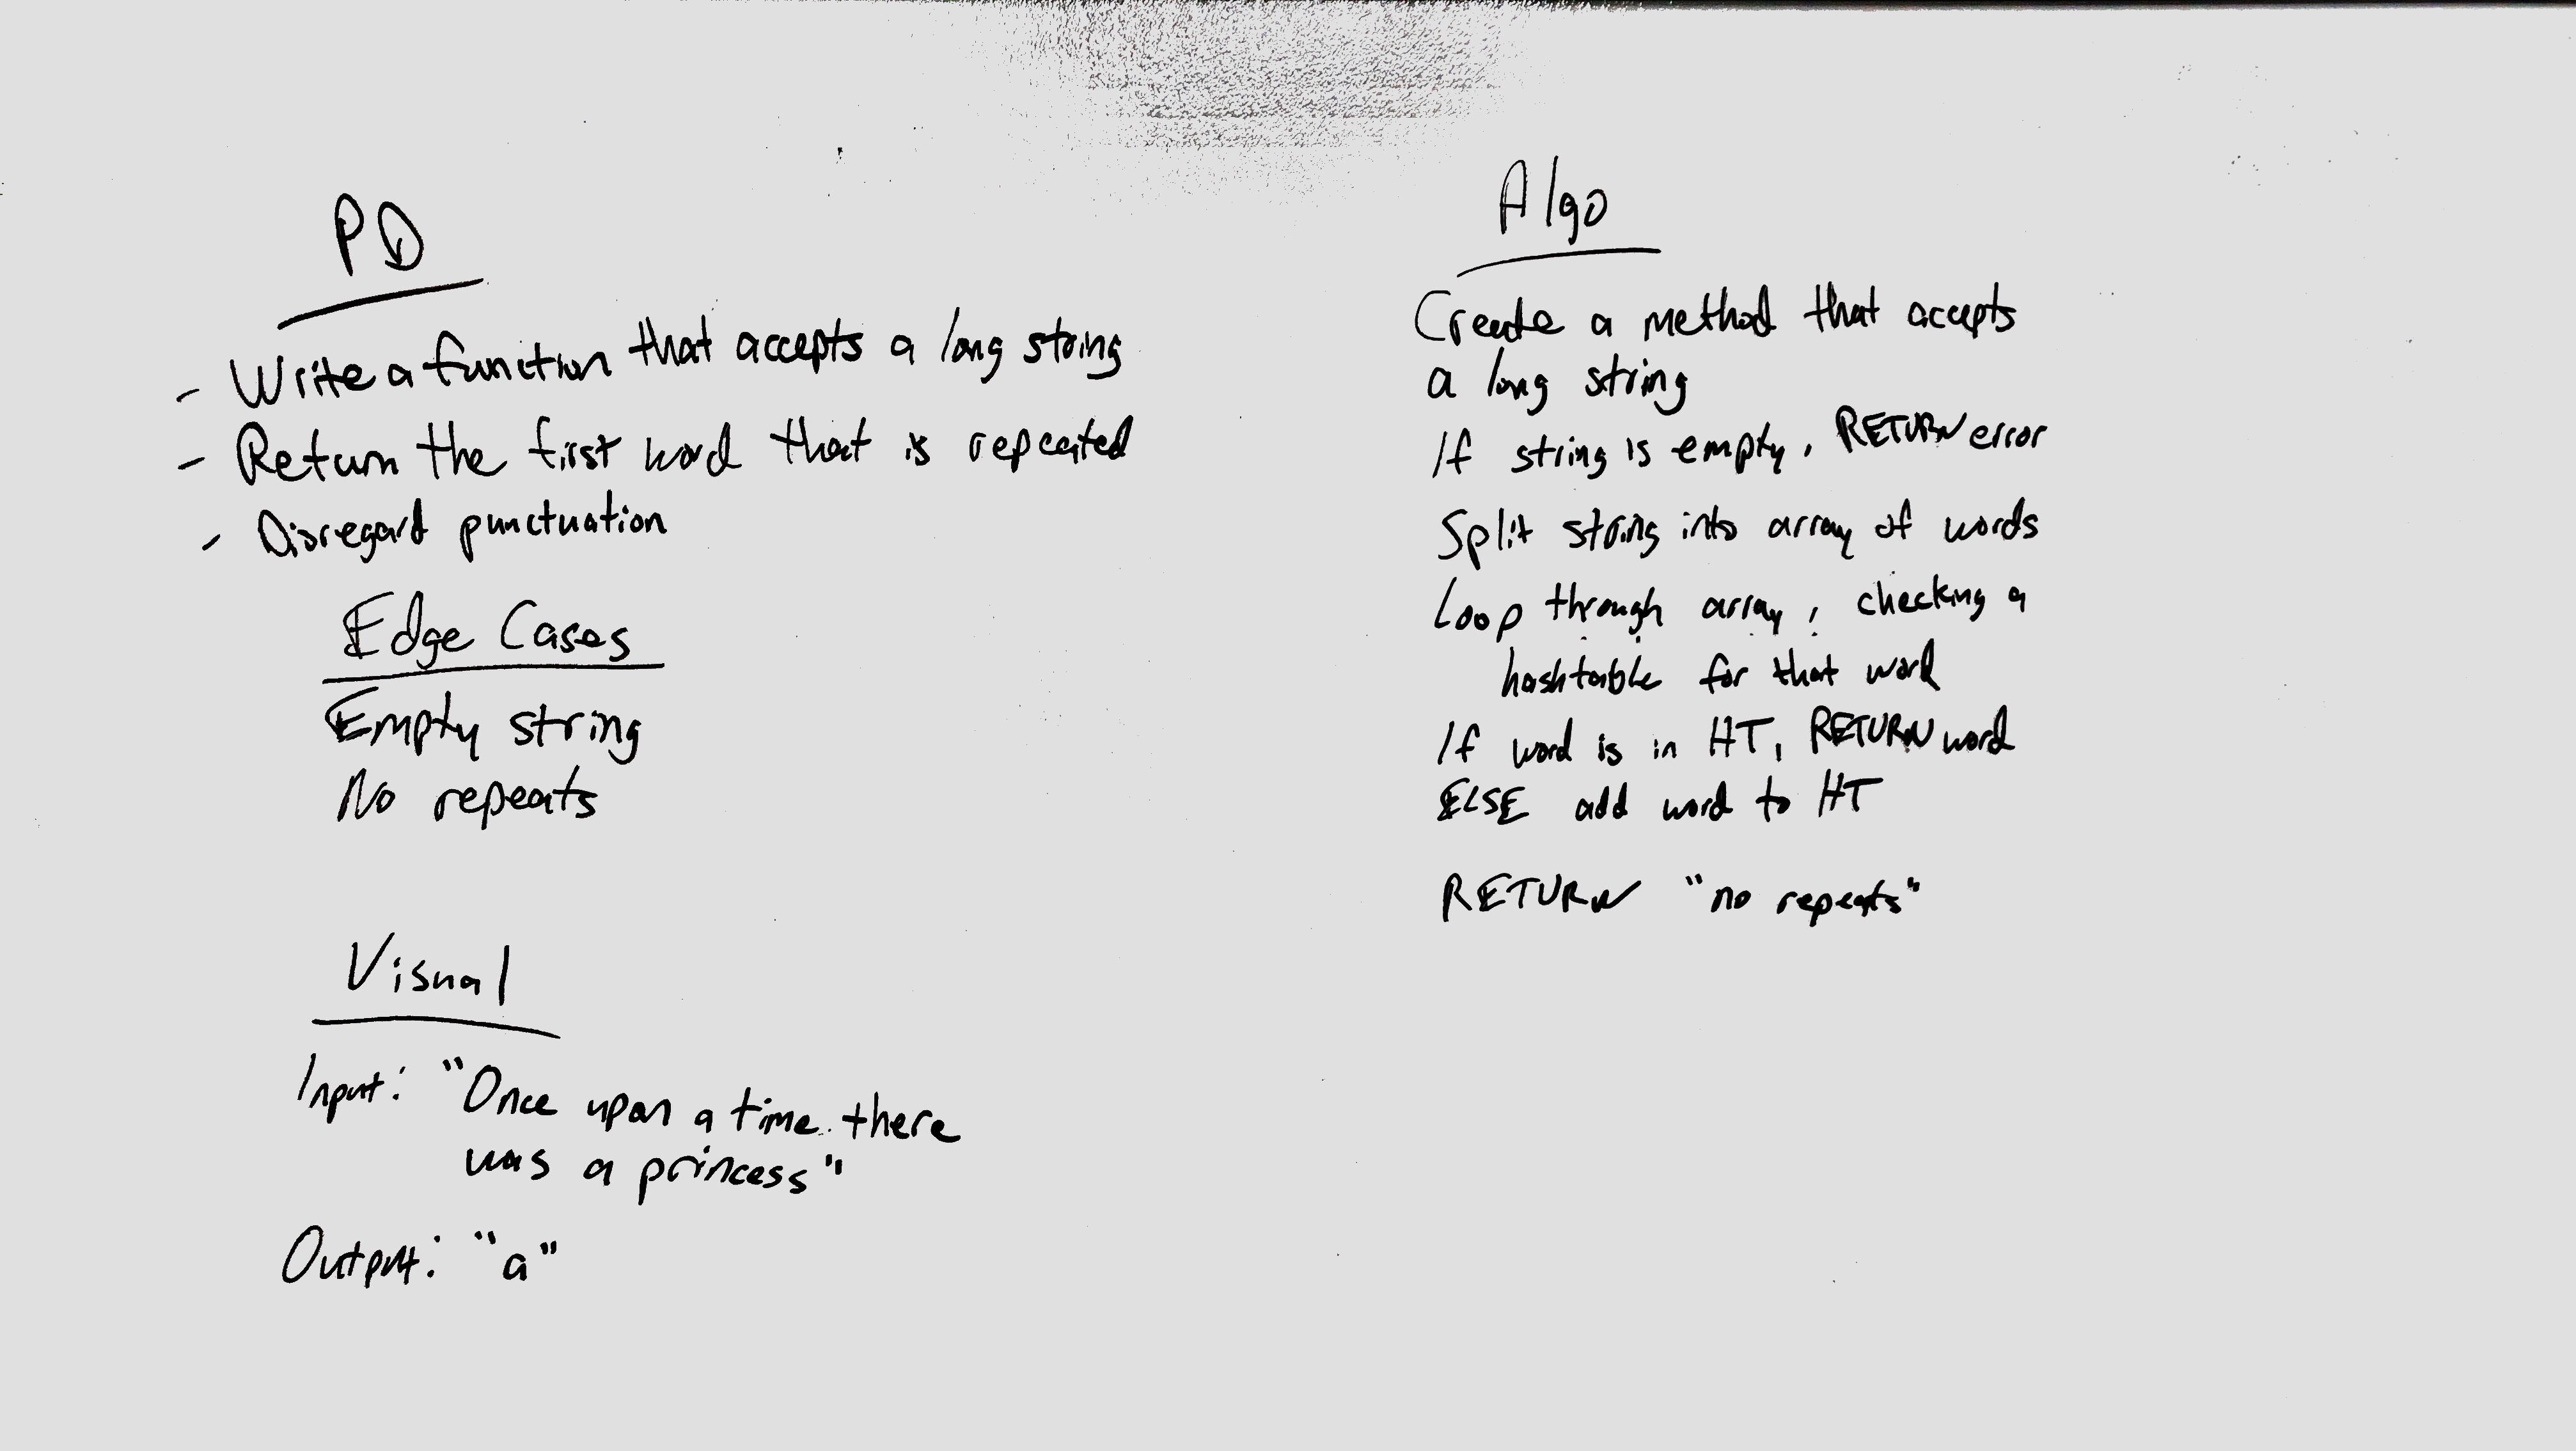 PD
- Write a function that accepts a long string
- Return the first word that is repeated
- Disregard punctuation
Edge Cases
Empty string
No repeats
Visual
Input: "Once upon a time there
was a princess"
Output: "a"
Algo
Create a method that accepts
a long string
If string is empty, RETURN error
Split string into array of words
Loop through array, checking a
hashtable for that word
If word is in HT, RETURN word
ELSE add word to HT
RETURN "no repeats"